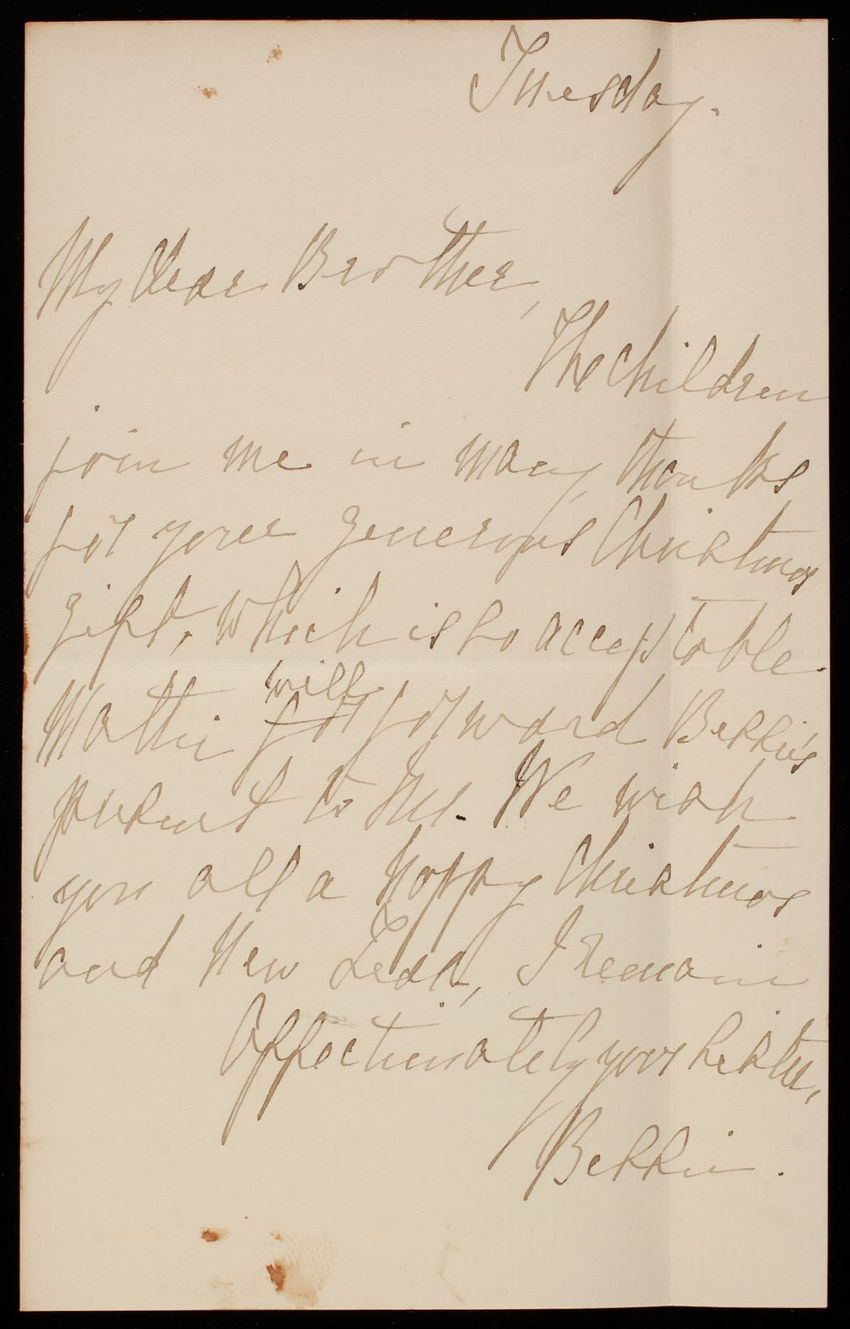 Tuesday.
My dear Brother,
The children
join me in many thanks
for your generous Christmas
gift, which is so acceptable.
Mattie will forward Bessie's
present to me. We wish
you all a happy Christmas
and New Year, I remain
Affectionately your sister,
Bessie.